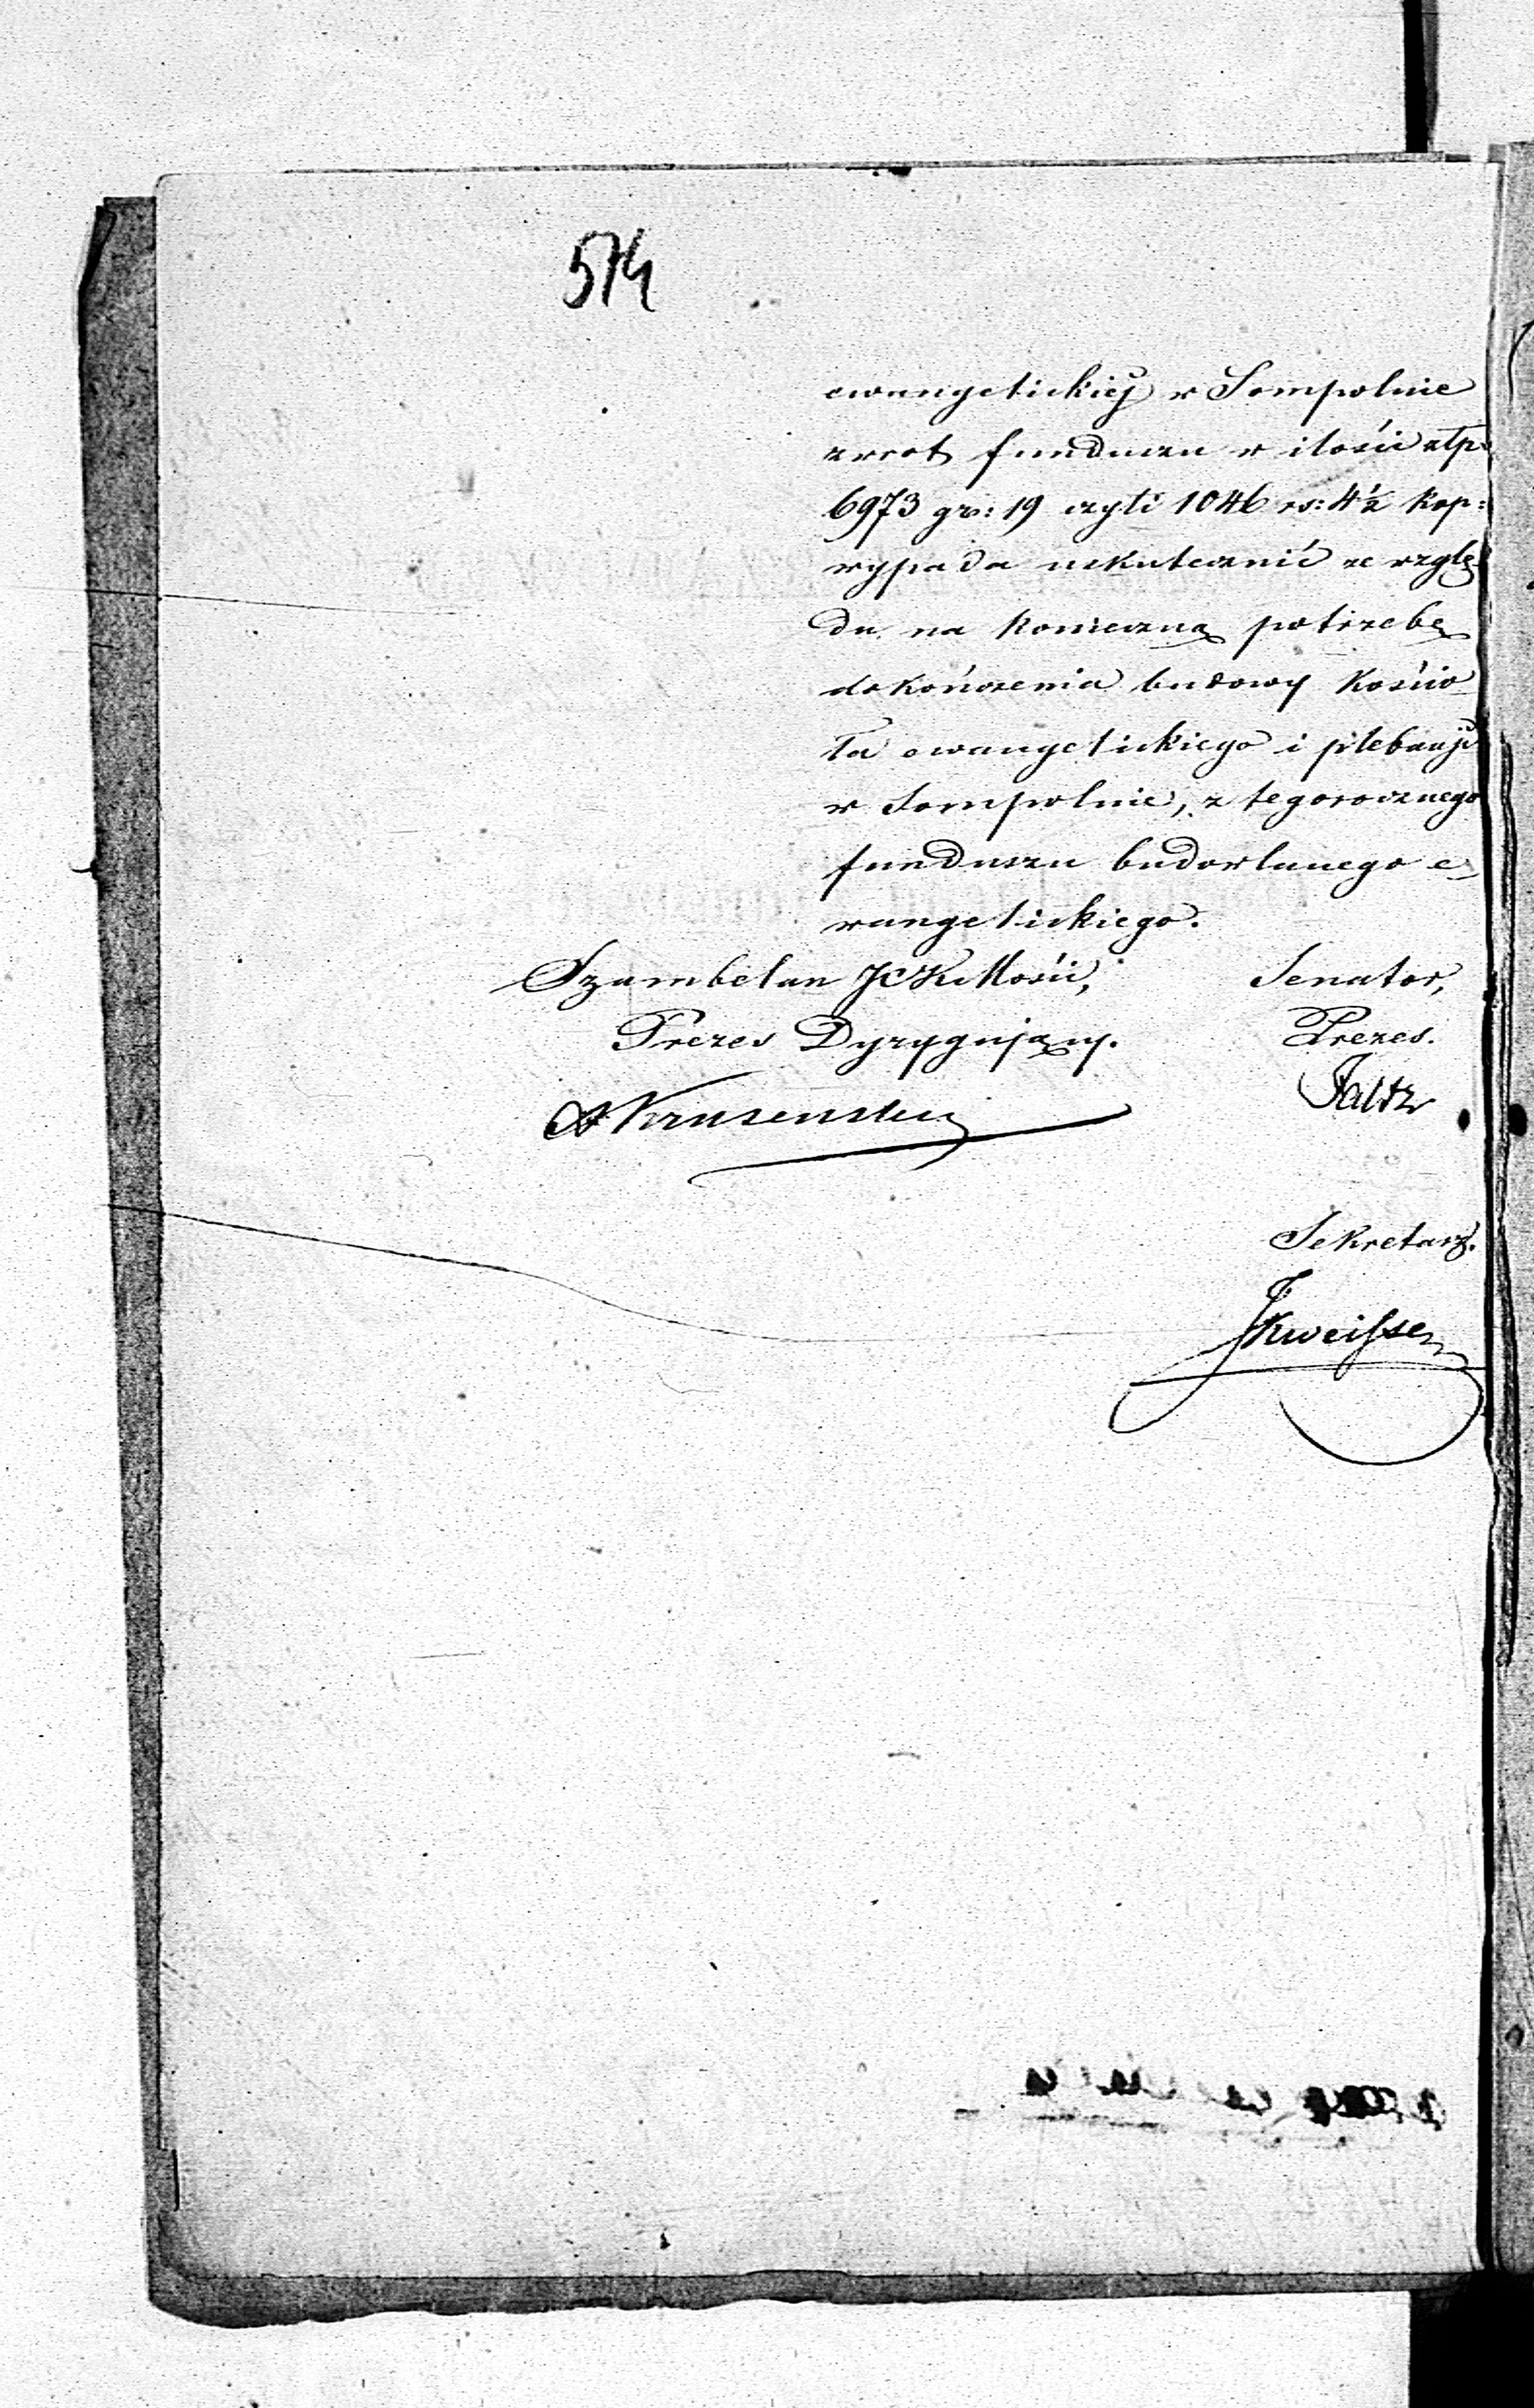 574
ewangelickiéj w Sompolnie
zwrot funduszu w ilości złp.
6973 gr: 19 czyli 1046 rs: 4½ kop:
wypada uskutecznić ze wzglę-
du na konieczną potrzebę
dokończenia budowy kościo-
ła ewangelickiego i plebanji
w Sompolnie, z tegorocznego
funduszu budowlanego e-
wangelickiego.
Szambelan JCK Mości, Senator,
Prezes Dyrygujący. Prezes.
A Krusenstern
Sekretarz.